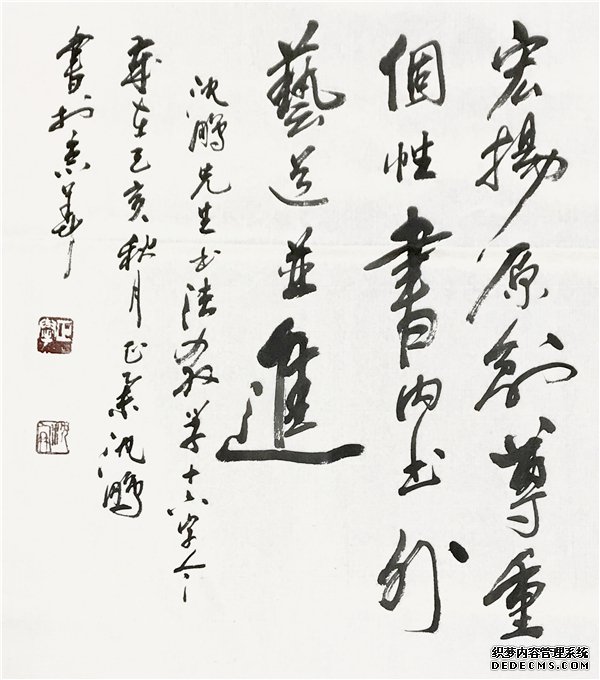 宏揚原創尊重
個性書内书外
藝道並進
沈鹏先生书法教学十六字令
歲在己亥秋月沈鹏
書於京華
织梦内容管理系统
DEDECMS.COM